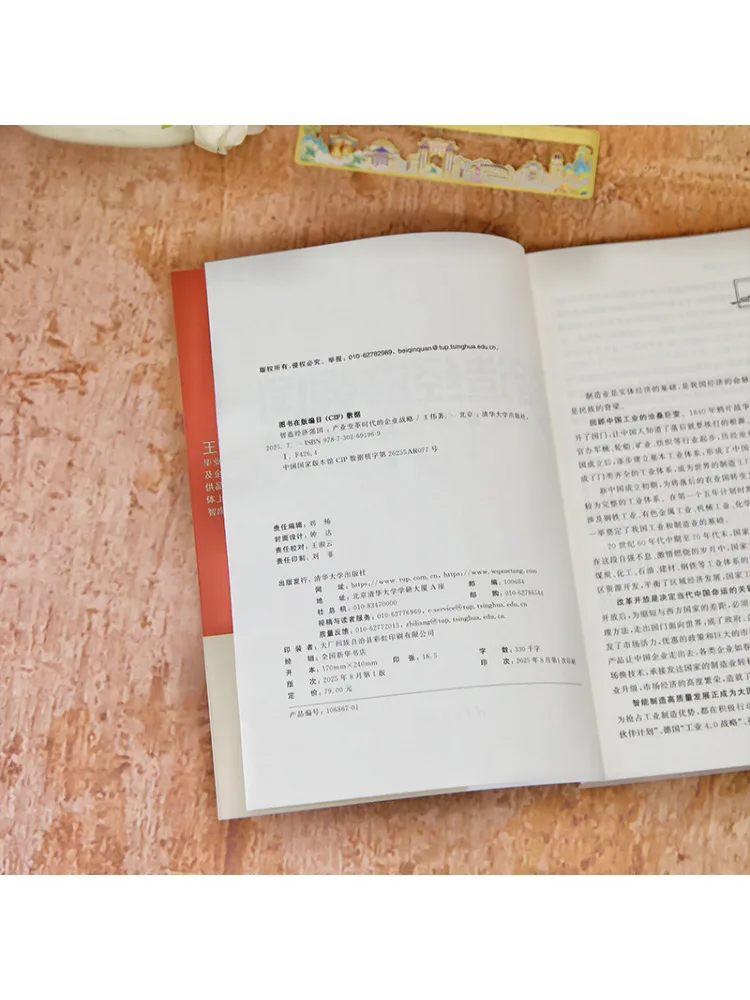 版权所有,侵权必究。举报:010-62782989, beiqinquan@tup.tsinghua.edu.cn。
图书在版编目(CIP)数据
智造经济强国:产业变革时代的企业战略/王伟著. -- 北京:清华大学出版社,
2025. 7. -- ISBN 978-7-302-69196-9
Ⅰ. F426.4
中国国家版本馆 CIP 数据核字第 20255AR077 号
责任编辑:刘 杨
封面设计:钟 达
责任校对:王淑云
责任印制:刘 菲
出版发行:清华大学出版社
网 址:https://www.tup.com.cn, https://www.wqxuetang.com
地 址:北京清华大学学研大厦 A 座 邮 编:100084
社 总 机:010-83470000 邮 购:010-62786544
投稿与读者服务:010-62776969, c-service@tup.tsinghua.edu.cn
质量反馈:010-62772015, zhiliang@tup.tsinghua.edu.cn
印 装 者:大厂回族自治县彩虹印刷有限公司
经 销:全国新华书店
开 本:170mm×240mm 印 张:18.5 字 数:330 千字
版 次:2025 年 8 月第 1 版 印 次:2025 年 8 月第 1 次印刷
定 价:79.00 元
产品编号:106867-01
王
毕业
及金
供品
体上
智库
制造业是实体经济的基础,是我国经济的命脉
是民族的脊梁。
回顾中国工业的沧桑巨变。1840 年鸦片战争
开了国门,让中国人知道了落后就要挨打的
官办军械、轮船、矿业、纺织等行业起步,历经
国成立后,逐步建立基本工业体系,形成了中
成了门类齐全的工业体系,成为世界的制造工厂
新中国成立初期,为将落后的农业国转变
较为完整的工业体系。在第一个五年计划时期
涉及钢铁工业、有色金属工业、机械工业、化学
一举奠定了我国工业和制造业的基础。
20 世纪 60 年代中期至 70 年代末,国家
在这段自强不息、激情燃烧的岁月中,国家
煤炭、化工、石油、建材、钢铁等工业体系的
区资源开发,平衡了区域经济发展,国家工
改革开放是决定当代中国命运的关键
开放后,为缩短与西方国家的差距,必须
理方法,走出国门面向世界,成了政府、企
发了市场活力,优惠的政策和巨大的市
产品让中国企业走出去,各类企业如春
场换技术,承接发达国家的制造业转
业升级,市场经济的高度繁荣,造就了
智能制造高质量发展正成为大国
为抢占工业制造优势,都在积极行动
伙伴计划”、德国“工业 4.0 战略”、